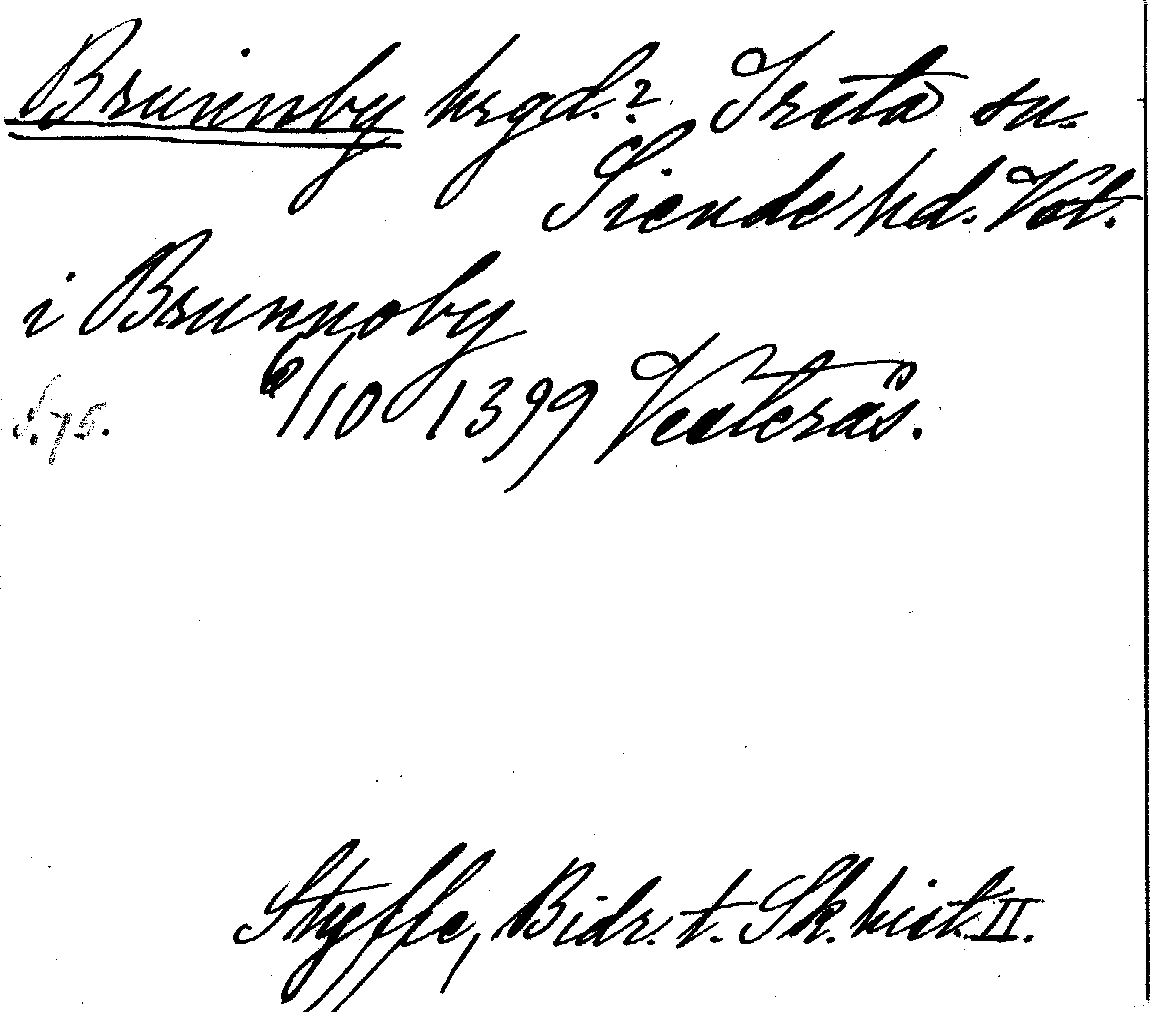 Brunnby hrgd? Irsta sn.
Siende hd. Vst.
i Brunnoby
6/10 1399 Vesterås.
S. 75.
Styffe, Bidr. t. Sk. hist. II.